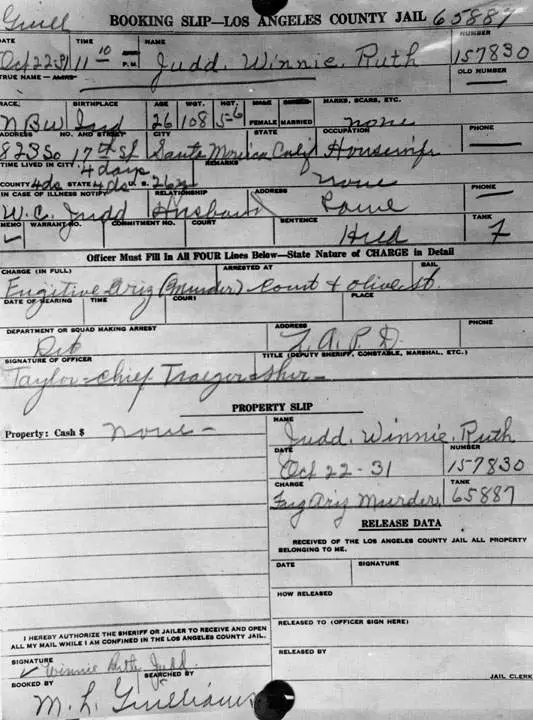 BOOKING SLIP—LOS ANGELES COUNTY JAIL 65887
DATE TIME NAME NUMBER
Oct 22-31 11 10 P.M. Judd, Winnie, Ruth 157830
TRUE NAME— ALIAS OLD NUMBER
RACE, BIRTHPLACE AGE WGT. HGT. MALE SINGLE MARKS, SCARS, ETC.
Ind 26 108 5-6 FEMALE MARRIED none
ADDRESS NO. AND STREET CITY STATE OCCUPATION PHONE
823 So 17th St Santa Monica Calif Housewife
TIME LIVED IN CITY 4 days REMARKS
COUNTY 4ds STATE 4ds U. S. 26y none
IN CASE OF ILLNESS NOTIFY RELATIONSHIP ADDRESS PHONE
W. C. Judd Husband Same
MEMO WARRANT NO. COMMITMENT NO. COURT SENTENCE TANK
Officer Must Fill In All FOUR Lines Below—State Nature of CHARGE in Detail
CHARGE (IN FULL) ARRESTED AT BAIL
Fugitive Ariz (Murder) Court & Olive St.
DATE OF HEARING TIME COURT PLACE
DEPARTMENT OR SQUAD MAKING ARREST ADDRESS PHONE
Det L. A. P. D.
SIGNATURE OF OFFICER TITLE (DEPUTY SHERIFF, CONSTABLE, MARSHAL, ETC.)
Taylor-Chief Traeger-Sher-
PROPERTY SLIP
Property: Cash $ None-
NAME
Judd, Winnie, Ruth
DATE NUMBER
Oct 22-31 157830
CHARGE TANK
Fug Ariz Murder, 65887
RELEASE DATA
RECEIVED OF THE LOS ANGELES COUNTY JAIL ALL PROPERTY
BELONGING TO ME.
DATE SIGNATURE
HOW RELEASED
RELEASED TO (OFFICER SIGN HERE)
RELEASED BY
JAIL CLERK
I HEREBY AUTHORIZE THE SHERIFF OR JAILER TO RECEIVE AND OPEN
ALL MY MAIL WHILE I AM CONFINED IN THE LOS ANGELES COUNTY JAIL.
SIGNATURE Winnie Ruth Judd
BOOKED BY SEARCHED BY